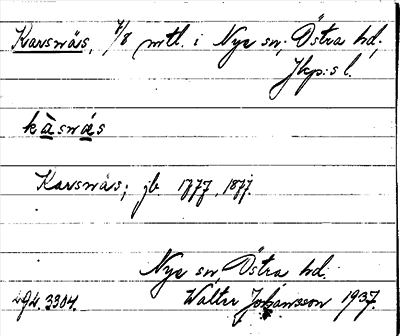 Karsnäs, 7/8 mtl. i Nye sn, Östra hd,
Jkp:s l.
kàsnás
Karsnäs; jb 1777, 1877.
Nye sn Östra hd.
494.3304. Walter Johansson 1937.